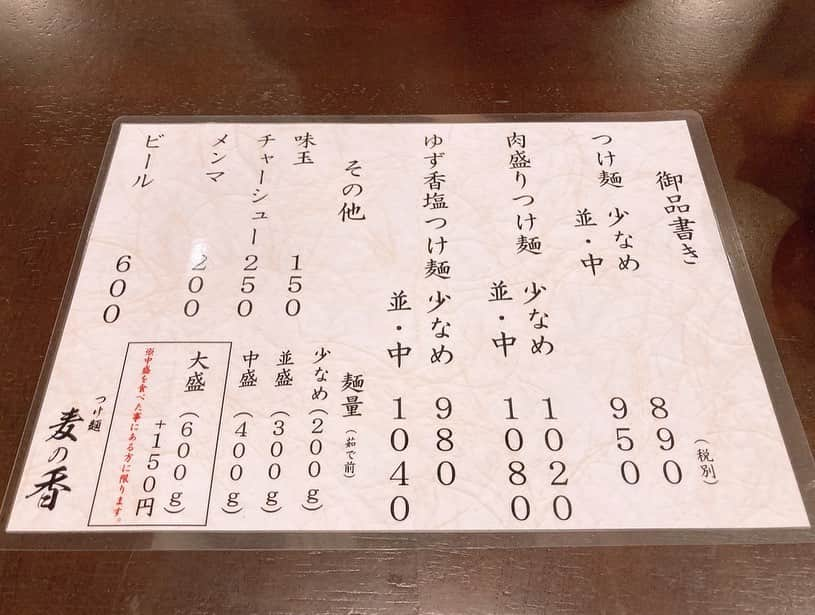 御品書き
(税別)
つけ麺 少なめ 890
並・中 950
肉盛りつけ麺 少なめ 1020
並・中 1080
ゆず香塩つけ麺 少なめ 980
並・中 1040
その他
味玉 150
チャーシュー 250
メンマ 200
ビール 600
麺量 (茹で前)
少なめ (200g)
並盛 (300g)
中盛 (400g)
大盛 (600g)
+150円
※中盛を食べた事にある方に限ります。
つけ麺
麦の香